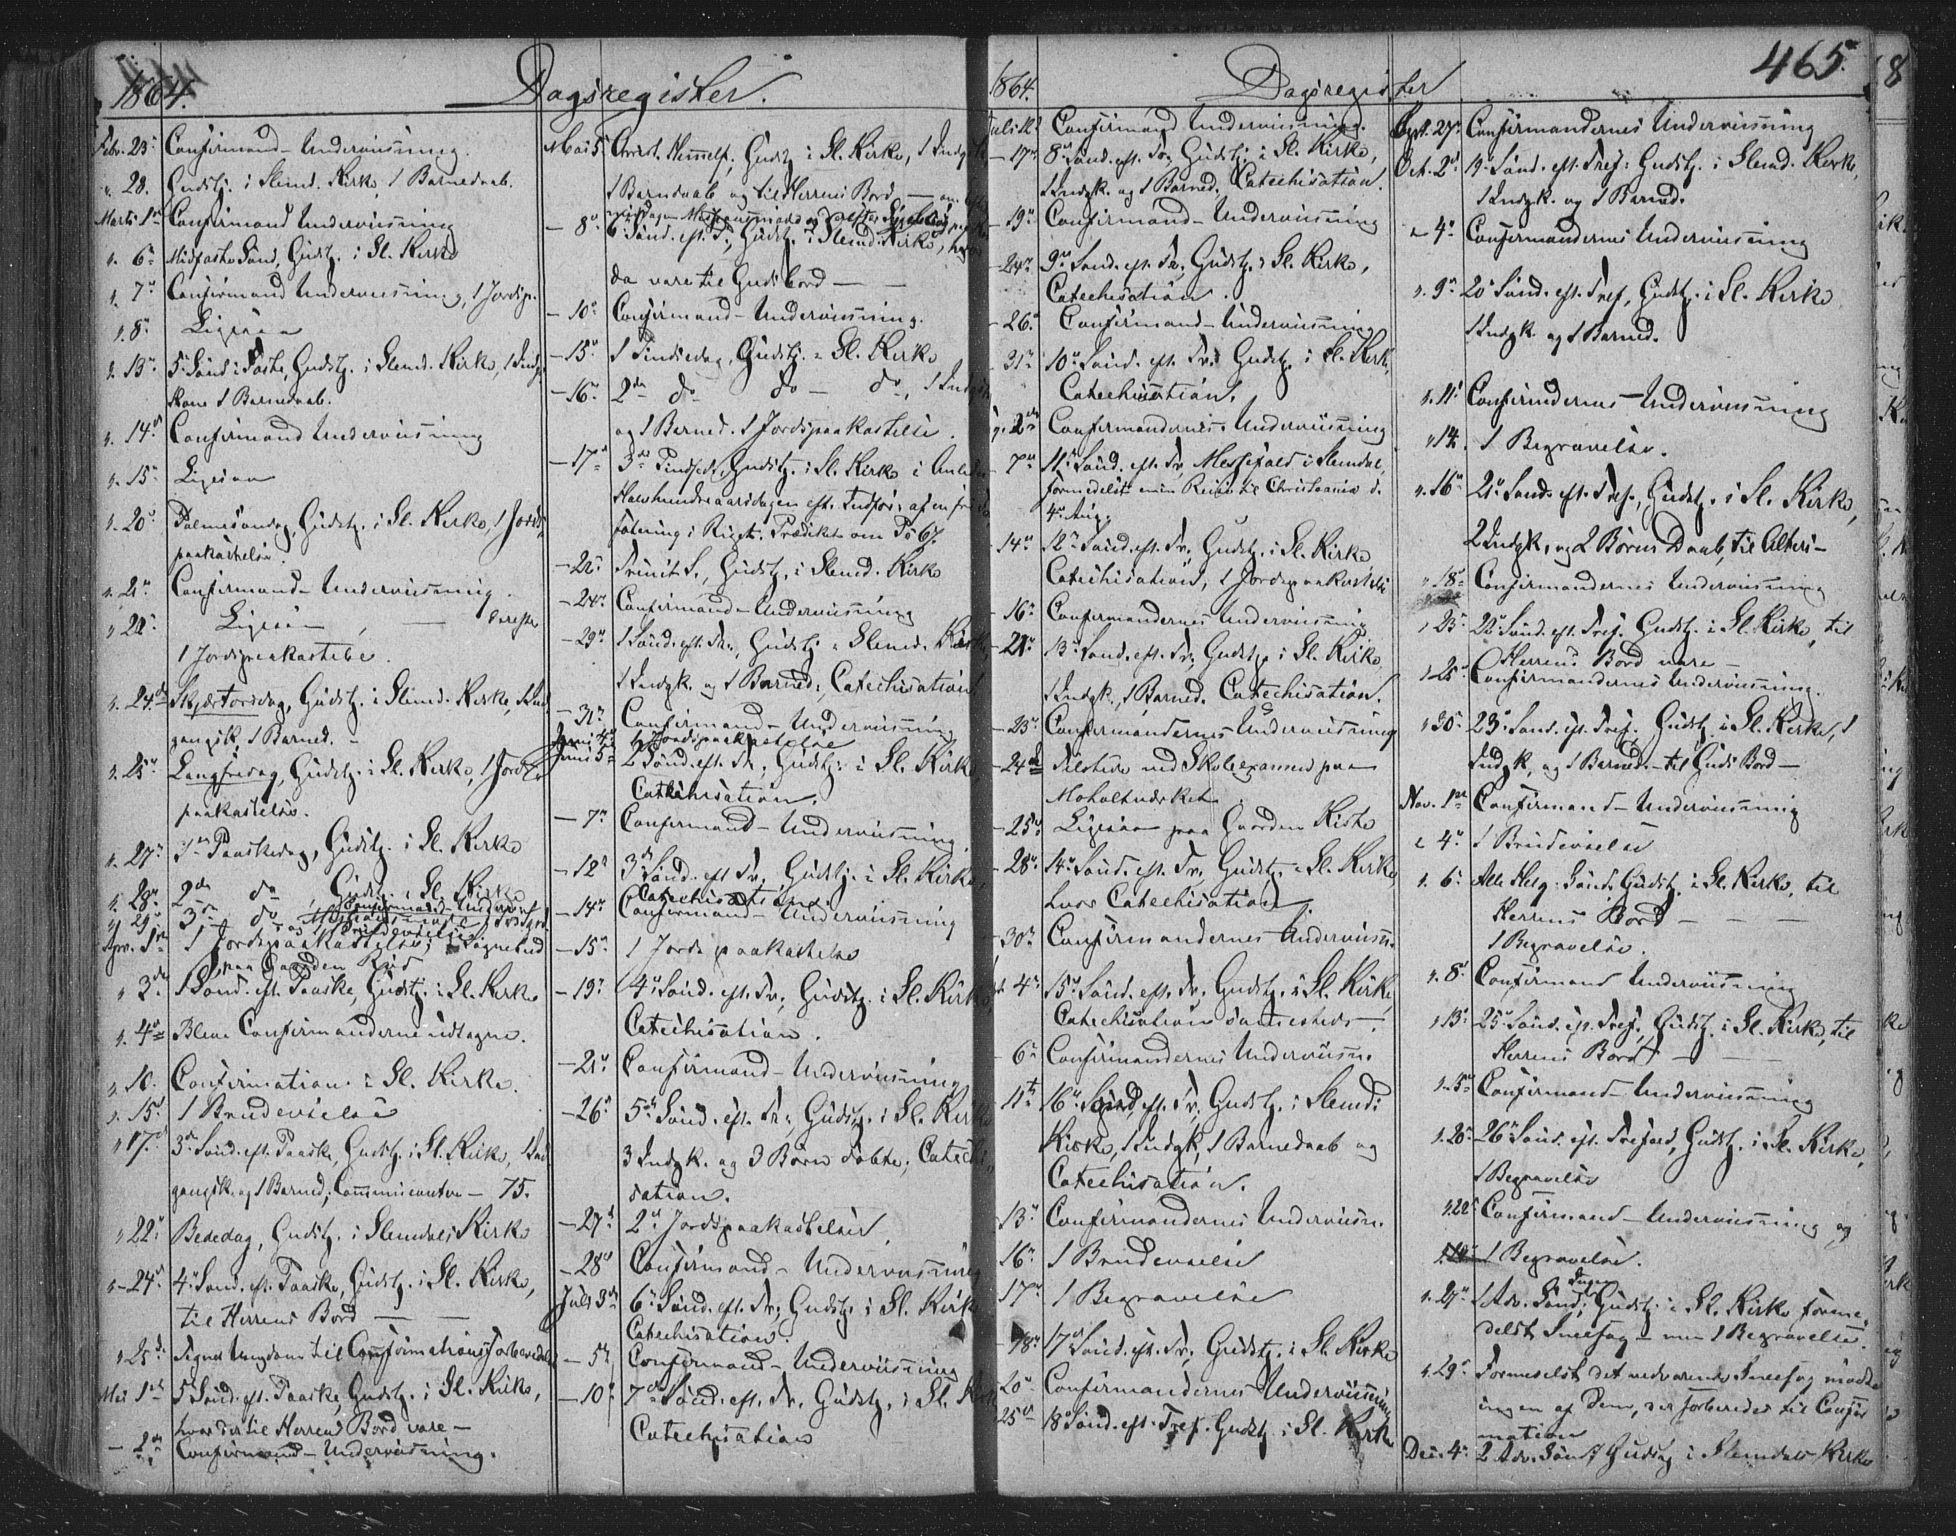 1864.
Dagsregister.
Febr. 23 Confirmand-Underviisning.
" 28. Gudstj. i Slemd. Kirke, 1 Barnedaab.
Marts 1 Confirmand Underviisning
" 6 Midfaste Sønd, Gudstj. i Sl. Kirke
" 7 Confirmand Underviisning, 1 Jordsp.
" 8 Ligesaa
" 13 5 Sønd i Faste, Gudstj. i Slemd. Kirke, 1 Indg.
Kone 1 Barnedaab.
" 14 Confirmand Underviisning
" 15 Ligesaa
" 20 Palmesøndag, Gudstj. i Sl. Kirke, 1 Jords
paakastelse.
" 21 Confirmand-Underviisning.
" 22 Ligesaa
1 Jordspaakastelse.
" 24 Skjærtorsdag, Gudstj. i Slemd. Kirke, 1 Ind
gangsk. 1 Barned.
" 25 Langfredag, Gudstj. i Sl. Kirke, 1 Jords
paakastelse.
" 27 1ste Paaskedag, Gudstj. i Sl. Kirke
" 28 2den do Gudstj. i Sl. Kirke
" 29 3 do
Apr. 1 1 Jordspaakastelse,
paa Gaarden
" 3 1 Sønd. eft. Paaske, Gudstj. i Sl. Kirke
" 4 Bleve Confirmanderne udtagne.
" 10. Confirmation i Sl. Kirke.
" 15 1 Brudevielse
" 17 3 Sønd. eft. Paaske, Gudstj. i Sl. Kirke, 1 Ind
gangsk. og 1 Barned; Communicanter - 75.
" 22 Bededag, Gudstj. i Slemdals Kirke
" 24 4 Sønd. eft. Paaske, Gudstj. i Sl. Kirke,
til Herrens Bord
" 25 Ungdom til Confirmationsforberedelse
Mai 1 5 Sønd. eft. Paaske, Gudstj. i Sl. Kirke,
hvor der til Herrens Bord vare -
- 2 Confirmand-Underviisning.
Mai 5 Christi Himmelf, Gudstj. i Sl. Kirke, 1 Indgk
1 Barnedaab og til Herrens Bord
- 8 6 Sønd. eft. P., Gudstj. i Slemd. Kirke, hvor
da vare til Guds bord
- 10 Confirmand-Underviisning.
- 15 1 Pindsedag, Gudstj. i Sl. Kirke
- 16 2den do do - do, 1 Indgk
og 1 Barned. 1 Jordspaakastelse.
- 17 3 Pindsed. Gudstj. i Sl. Kirke i Anledn
Halvhundreaarsdagen eft. Indfør. af en fri
fatning i Riget. Prædiket om Ps 67.
- 22 Trinit S., Gudstj. i Slemd. Kirke
- 24 Confirmand-Underviisning
- 29 1 Sønd. eft. Tr., Gudstj. i Slemd. Kirke,
1 Indgk. og 1 Barned; Catechisation
- 31 Confirmand-Underviisning
Juni 4 1 Jordspaakastelse
Juni 5 2 Sønd. eft. Tr., Gudstj. i Sl. Kirke
Catechisation.
- 7 Confirmand-Underviisning.
- 12 3 Sønd. eft. Tr, Gudstj. i Sl. Kirke,
Catechisation
- 14 Confirmand-Underviisning
- 15 1 Jordspaakastelse
- 19 4 Sønd. eft. Tr, Gudstj. i Sl. Kirke,
Catechisation.
- 21 Confirmand-Underviisning
- 26 5 Sønd. eft. Tr; Gudstj. i Sl. Kirke
3 Indgk. og 3 Børn døbte, Catechi
sation.
- 27 2 Jordspaakastelser.
- 28 Confirmand-Underviisning
Juli 3 6 Sønd. eft. Tr; Gudstj. i Sl. Kirke
Catechisation.
- 5 Confirmand-Underviisning
- 10 7 Sønd. eft. Tr. Gudstj. i Sl Kirke
Catechisation
1864.
Dagsregister
465.
Juli 12 Confirmand Underviisning.
- 17 8 Sønd. eft. Tr; Gudstj. i Sl. Kirke,
1 Indgk. og 1 Barned. Catechisation.
- 19 Confirmand-Underviisning
- 24 9 Sønd. eft. Tr; Gudstj. i Sl. Kirke,
Catechisation.
- 26 Confirmand-Underviisning
31 10 Sønd. eft. Tr; Gudstj. i Sl. Kirk,
Catechisation.
2 Confirmandernes Underviisning
7 11 Sønd. eft. Tr, Messefald i Slemdal,
formedelst min Reise til Christiania d.
4 Aug.
- 14 12 Sønd. eft. Tr, Gudstj. i Sl. Kirke
Catechisation, 1 Jordspaakastelse
- 16 Confirmandernes Underviisning
- 21 13 Sønd. eft. Tr; Gudstj. i Sl. Kirke
1 Indgk, 1 Barned. Catechisation.
- 23 Confirmandernes Underviisning
- 24 Tilstede ved Skoleexamen paa
Moholtværket
- 25 Ligesaa paa Gaarden Kiste
- 28 14 Sønd. eft. Tr, Gudstj. i Sl. Kirke,
hvor Catechisation
- 30 Confirmandernes Underviisn.
4 15 Sønd. eft. Tr, Gudstj. i Sl. Kirke,
Catechisation sammesteds.
- 6 Confirmandernes Underviisn.
11 16 Sønd. eft. Tr. Gudstj. i Slemd:
Kirke, 1 Indgk, 1 Barnedaab og
Catechisation.
- 13 Confirmandernes Underviisn.
16 1 Brudevielse
17 1 Begravelse
- 18 17 Sønd. eft. Tr, Gudstj. i Sl. Kirke
20 Confirmandernes Underviisning
25 18 Sønd. eft. Tref. Gudstj. i Sl. Kirke
Sept. 27 Confirmandernes Underviisning
Oct. 2 19 Sønd. eft. Tref: Gudstj. i Slemd. Kirke,
1 Indgk. og 1 Barned.
" 4 Confirmandernes Underviisning
" 9 20 Sønd. eft. Tref, Gudstj. i Sl. Kirke
1 Indgk. og 1 Barned.
" 11 Confirmdernes-Underviisning
" 14 1 Begravelse.
" 16 21 Sønd. eft. Tref., Gudstj. i Sl. Kirke,
2 Indgk, og 2 Børns Daab, til Alters -
" 18 Confirmandernes Underviisning
" 23 22 Sønd. eft. Tref. Gudstj. i Sl. Kirke, til
Herrens Bord vare -
" 25 Confirmandernes Underviisning.
" 30 23 Sønd. eft. Tref. Gudstj. i Sl. Kirke, 1
Indgk, og 1 Barned. - til Guds Bord -
Nov. 1 Confirmand-Underviisning
" 4 1 Brudevielse
" 6 Alle Helg. Sønd. Gudstj. i Sl. Kirke, til
Herrens Bord
1 Begravelse.
" 8 Confirmand Underviisning
" 13 25 Sønd. eft. Tref, Gudstj. i Sl. Kirke, til
Herrens Bord
" 15 Confirmand-Underviisning
" 20 26 Sønd. eft. Trefold, Gudstj. i Sl. Kirke,
1 Begravelse
" 22 Confirmand-Underviisning og
1 Begravelse.
" 27 1 Adv. Sønd, Ingen Gudstj. i Sl. Kirke forme-
delst Sneefog - men 1 Begravelse.
" 29 Formedelst det vedvarende Sneefog mødte
ingen af Dem, der forberedes til Confir
mation
Dec. 4 2 Adv. Sønd. Gudstj i Slemdals Kirke